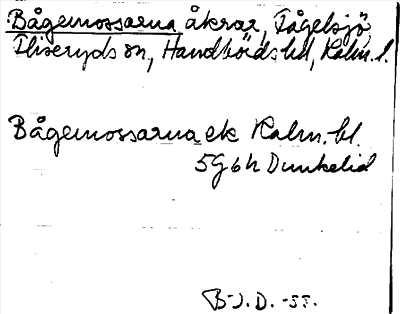 Bågemossarna åkrar, Fågelsjö,
Fliseryds sn, Handbörds hd, Kalm. l.
Bågemossarna ek Kalm. bl.
5G6h Dunkelid
B-J.D. -55.